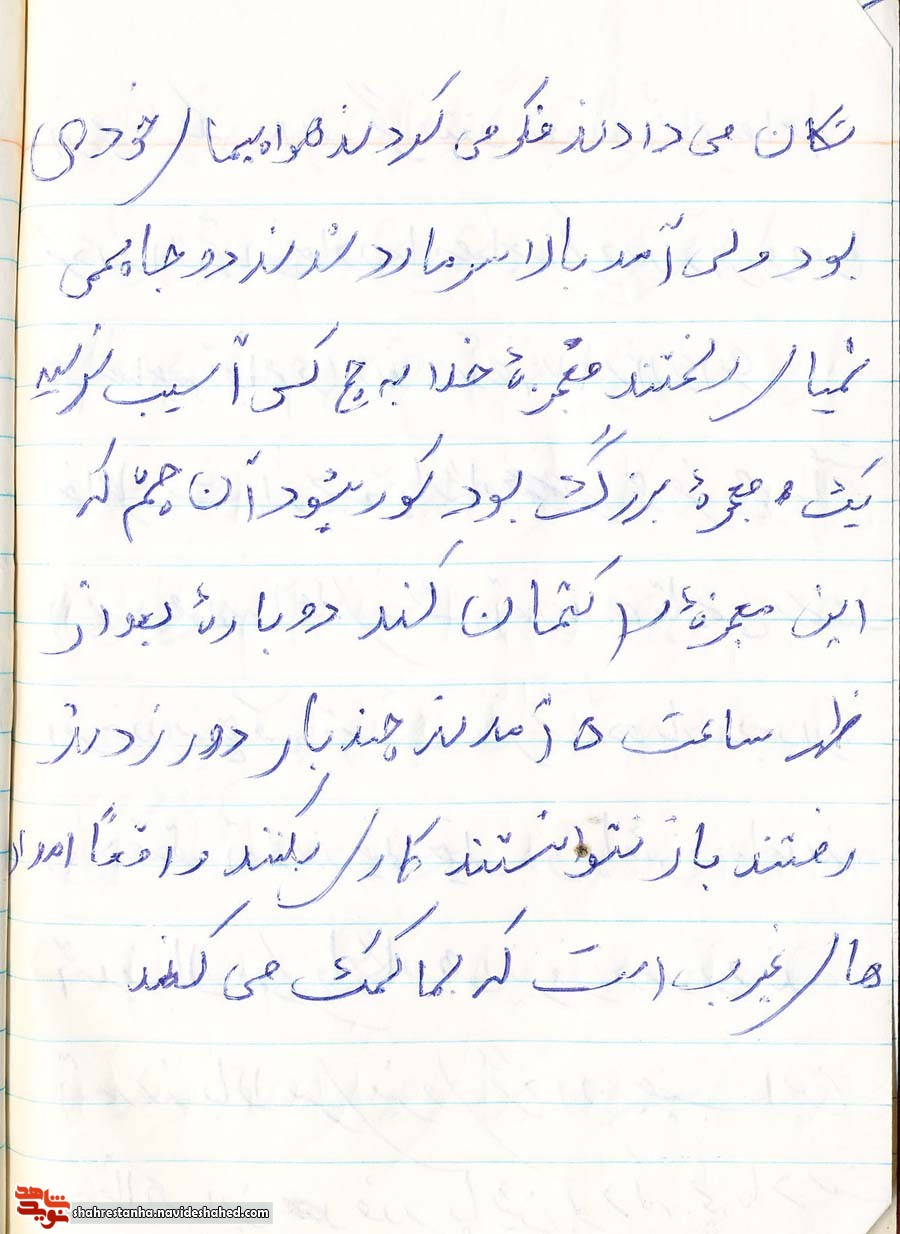 تکان می دادند فکر می کردند هواپیمای خودی
بود ولی آمد بالا سر ما رد شدند دو جا بمبی
خمپاری ریختند معجزۀ خدا به هیچ کس آسیب نرسید
یک معجزۀ بزرگ بود کور بشود آن چشم که
این معجزۀ را کتمان کند دوبارۀ بعد از
ظهر ساعت ۵ آمدند چند بار دور زدند
رفتند باز نتوانستند کاری بکنند واقعاً امداد
های غیب است که بما کمک می کنند
شاهد
نوید
shahrestanha.navideshahed.com